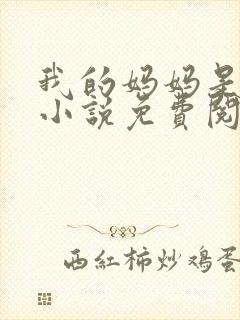 我的妈妈是
小说免費閱
西紅柿炒鸡蛋